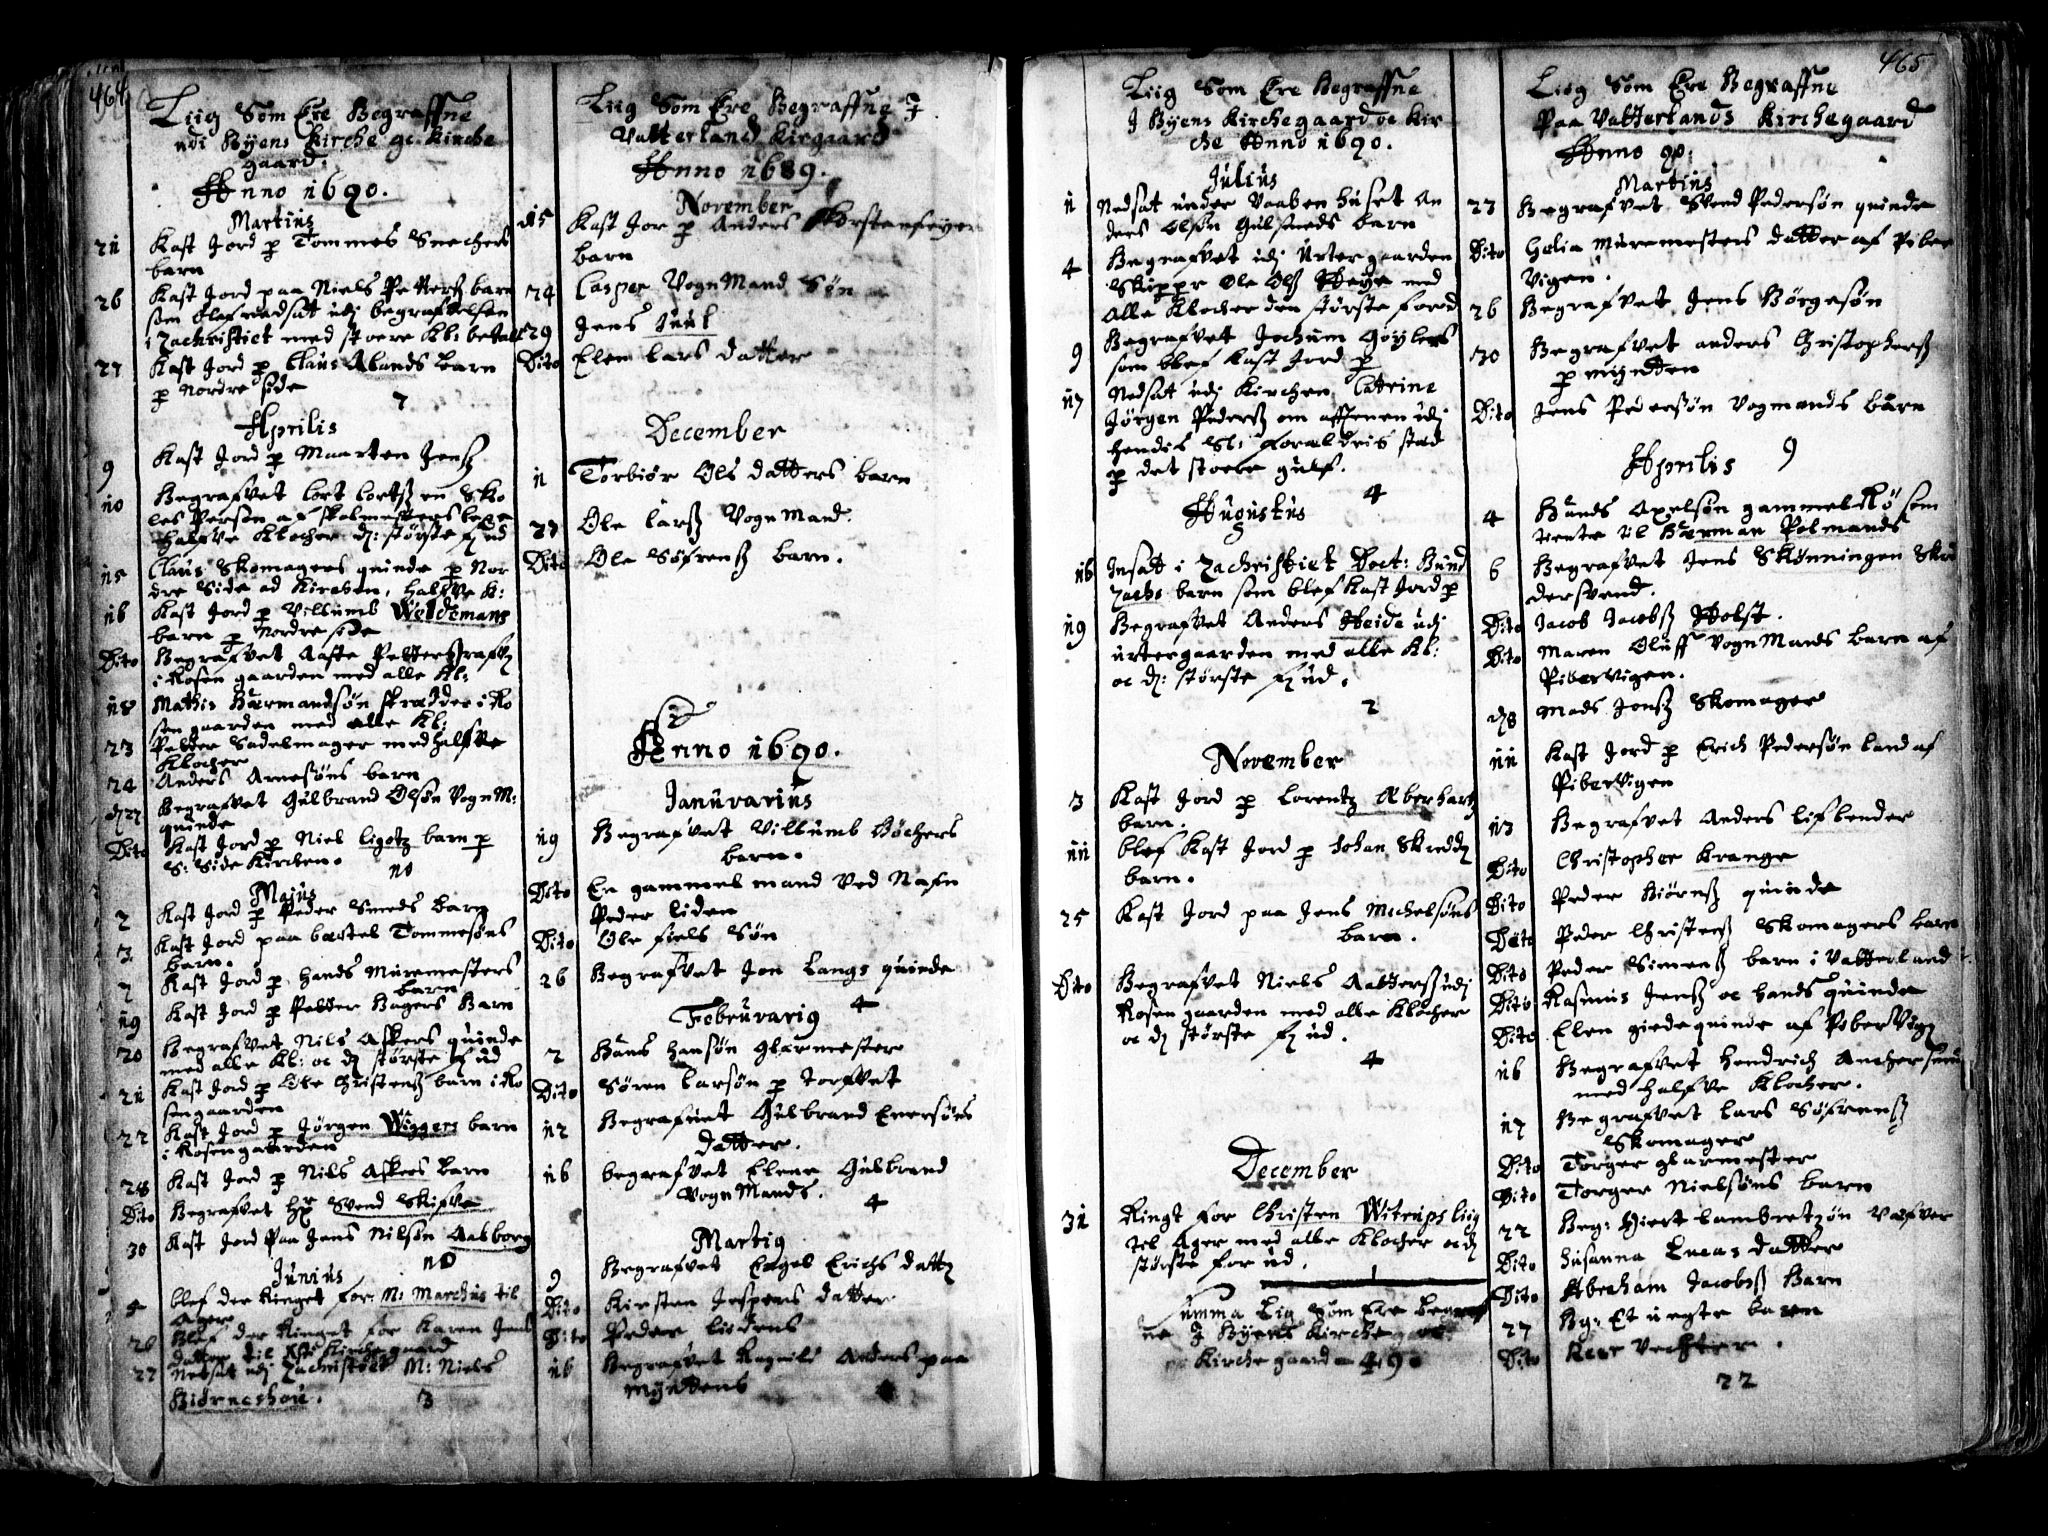 464
Liig Som Ere Begraffne
udi Byens Kirche oc Kirche
gaard.
Anno 1690.
Martius
21 Kast Jord p Tommes Snechers
barn
26 Kast Jord paa Niels Petters barn
som blef nedsat udj begrafvelsen
i Zachristiet med stoere Kl: betalt
27 Kast Jord p Claus Abands barn
p Nordre side
7
Aprilis
9 Kast Jord p Maarten Jenss
10 Begrafvet Cort Cortss en Sko
les Person af skolmesters
halfve Klocher dj: største fj ud
15 Claus Skomagers quinde p Nor
dre Side ad Kirchen, halfve K:
16 Kast Jord p Villumb Weldemans
barn p Nordre side
Dito Begrafvet Aaste Petters
i Rosengaarden med alle Kl:
18 Mathis Hermandsøn skredder i Ro
sengaarden med alle Kl:
23 Petter Sadelmager med halfve
Klocher
24 Anders Arnesøns barn
27 Begrafvet Gulbrand Olsøn Vogn M:
quinde
Dito Kast Jord p Niel Ligotz barn p
S: Side Kirchen.
10
Majus
2 Kast Jord p Peder Smeds barn
3 Kast Jord paa bertel Tommesøns
barn.
7 Kast Jord p Hands Muremesters
barn
19 Kast Jord p Petter Bagers Barn
20 Begrafvet Nils Askers quinde
med alle Kl: oc dj største fj ud
21 Kast Jord p Ole Christenss barn i Ro
sengaarden
22 Kast Jord p Jørgen Wiggers barn
i Rosengaarden
28 Kast Jord p Nils Askers barn
Dito Begrafvet Hr Svend Skifve
30 Kast Jord Paa Jens Nilsøn Aalborg
10
Junius
4 blef der Ringet for M: Marchus til
Ager
26 Blef der Ringet for Karen Jens
datter til Kirchegaard
27 Nedsat udj Zachristiet M: Niels
Biørneshou.
3
Liig Som Ere Begraffne I
Vatterland Kirgaard
Anno 1689.
November
15 Kast Jor p Anders Skorstenfeyer
barn
24 Casper Vogn Mand Søn
29 Jens Juul
Dito Elen Lars datter
December
11 Torbiør Ols datters barn
27 Ole Larss Vogn Mand.
Dito Ole Søfrenss barn.
Anno 1690.
Januvarius
19 Begrafvet Villumb Bøchers
barn.
Dito En gammel mand Ved Nafn
Peder Liden
Dito Ole fiels Søn
26 Begrafvet Jon Langs quinde
4
Februvarig
2 Hans Hansøn Glarmester
Dito Søren Larsøn p Torfvet
12 Begrafvet Gulbrand Enersøns
datter.
16 begrafvet Elene Gulbrand
Vogn Mands.
4
Martig
9 Begrafvet Engel Erichs datt
Dito Kirsten Jespers datter
Dito Peder Lidens
16 Begrafvet Ragnild Anders paa
Myntens
Liig Som Ere Begraffne
I Byens Kirchegaard oc Kir
che Anno 1690.
Julius
11 Nedsat under Vaaben huset An
ders Olsøn Gulsmeds barn
4 Begrafvet udj Urtergaarden
Skipper Ole Olss Heye med
alle Klocher den største for ud
9 Begrafvet Jochum Gøylers
som blef Kast Jord p
17 Nedsat udj Kirchen Catrine
Jørgen Pederss om afftenen udj
hendis Sl: foreldris sted
p det stoere gulf.
4
Augustus
16 Insatt i Zachristiet Doct: Bund
Zachs barn som blef Kast Jord p
19 Begrafvet Anders Heide udj
urtergaarden med alle Kl:
oc dj: største fj ud.
2
November
3 Kast Jord p Lorentz Aberhartz
barn.
11 blef Kast Jord p Johan Skredd
barn.
25 Kast Jord paa Jens Michelsøns
barn.
Dito Begrafvet Niels udj
Rosengaarden med alle Klocher
oc dj største fj ud.
4
December
31 Ringt for Christen Witrups liig
til Ager med alle Klocher oc dj
største for ud.
1
Summa Lig Som Ere Begraf
ne I Byens Kirche oc
Kirchegaard 49
465
Liig Som Ere Begraffne
Paa Vatterlands Kirchegaard
Anno 90.
Martius
23 Begrafvet Svend Pedersøn quinde
Dito Helie Muremesters datter af Piber
Vigen.
26 Begrafvet Jens Børgesøn
30 Begrafvet anders Christopherss
p myntten
Dito Jens Pedersøn Vogmands barn
9
Aprilis
4 Hands Axelsøn gammel Kø som
tiente til Herman Polmands
6 Begrafvet Jens Skønningen Skre
dersvend.
Dito Jacob Jacobss Holst.
Dito Maren Oluff Vogn Mands barn af
Pibervigen.
8 Mads Jenss Skomager
11 Kast Jord p Erich Pedersøn Land af
Pibervigen
13 Begrafvet Anders Liflender
Dito Christopher Krange
Dito Peder Biørnss quinde
Dito Peder Christenss Skomagers barn
Dito Peder Simenss barn i Vatterland
Dito Rasmus Jenss oc Hands quinde
Dito Elen giedequinde af Piber Vig
16 Begrafvet Hendrich Anchersen
med halfve Klocher.
17 Begrafvet Lars Søfrenss
Skomager
Dito Torger glarmester
Dito Torger Nielsøns barn
22 Beg: Giert Lambretzøn Vefver
Dito Susanna Lucas datter
Dito Abraham Jacobss Barn
27 Bg: Et uegte barn
Dito Keer Vechter.
22